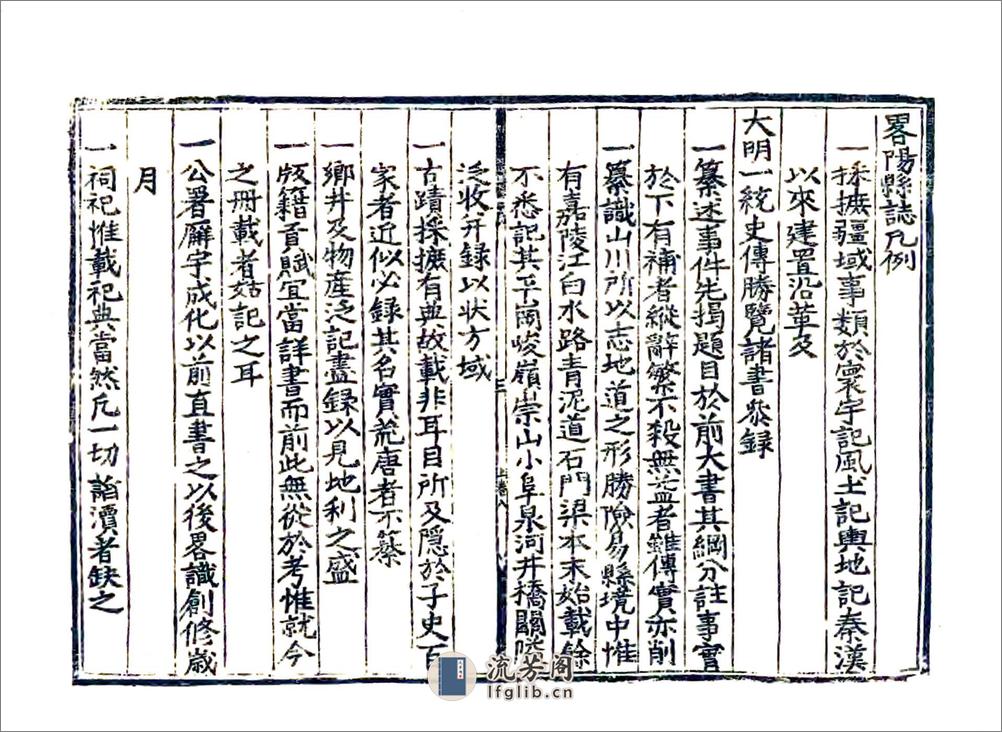 畧陽縣誌凡例
一採摭疆域事類於寰宇記風土記輿地記秦漢
以來建置沿革及
大明一統史傳勝覽諸書叅録
一纂述事件先揭題目於前大書其綱分註事實
於下有補者縱辭繁不殺無益者雖傳實亦削
一纂識山川所以志地道之形勝險易縣境中惟
有嘉陵江白水路青泥道石門梁本末始載餘
不悉記其平崗峻嶺崇山小阜泉河井橋關
泛收并録以状方域
一古蹟採摭有典故載非耳目所及隠於子史百
家者近似必録其名實荒唐者不纂
一鄉井及物産泛記盡録以見地利之盛
一版籍貢賦宜當詳書而前此無從於考惟就今
之册載者姑記之耳
一公署廨宇成化以前直書之以後畧識創修歲
月
一祠祀惟載祀典當然凡一切謟瀆者缺之
流芳阁
lfglib.cn